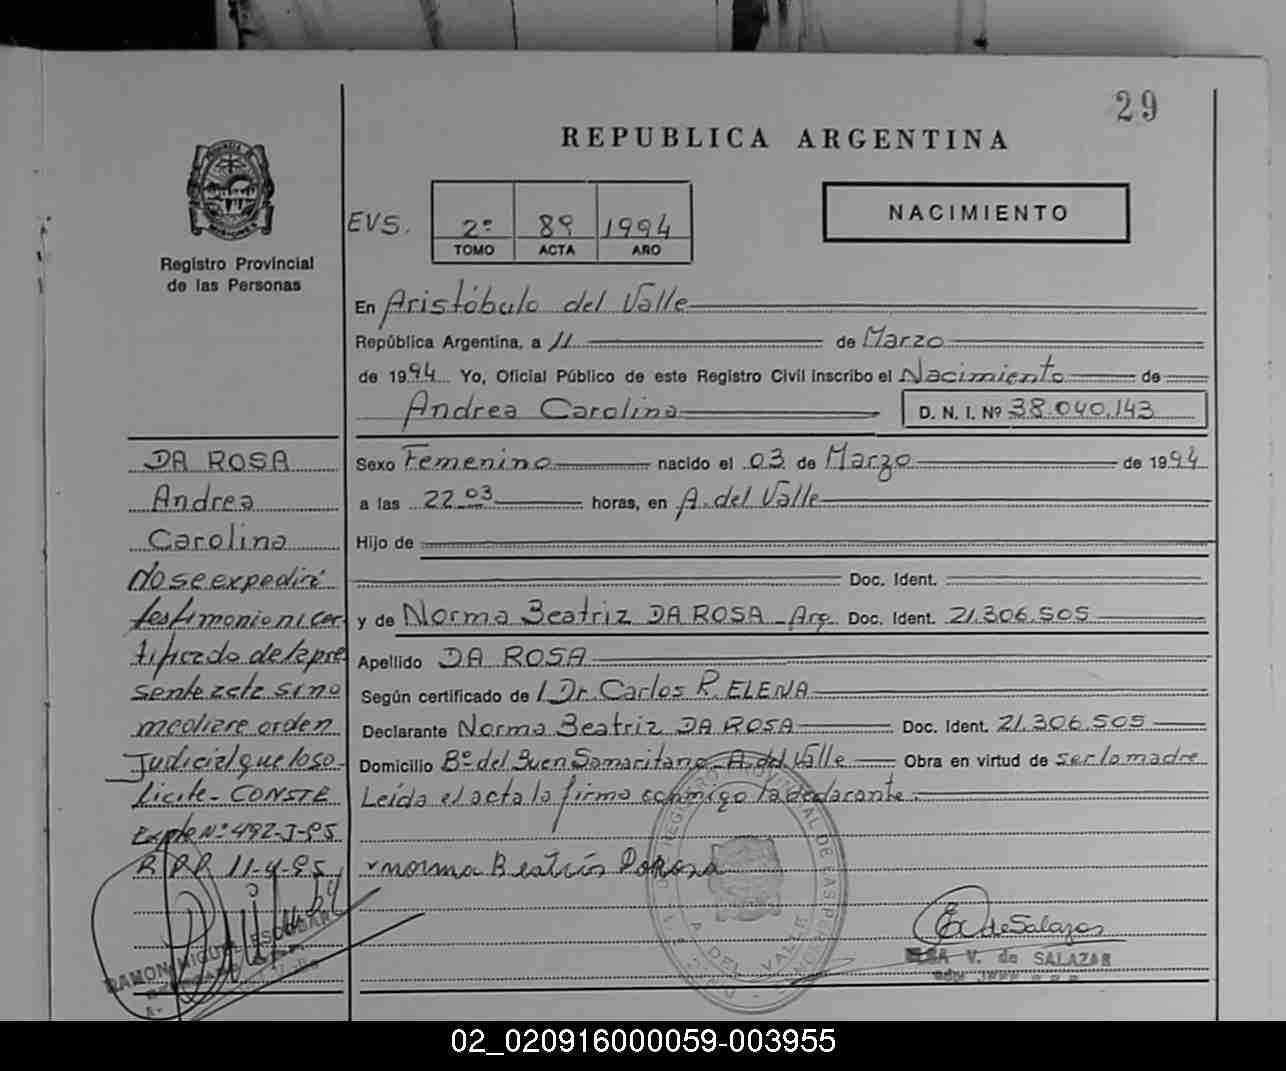 29
REPUBLICA ARGENTINA
NACIMIENTO
EVS. 2º 89 1994
TOMO ACTA AÑO
Registro Provincial
de las Personas
En Aristóbulo del Valle
República Argentina, a 11 de Marzo
de 1994 Yo, Oficial Público de este Registro Civil inscribo el Nacimiento de
Andrea Carolina D. N. I. Nº 38.040.143
Sexo Femenino nacido el 03 de Marzo de 1994
a las 22 03 horas, en A. del Valle
Hijo de
Doc. Ident.
y de Norma Beatriz DA ROSA - Arg. Doc. Ident. 21.306.505
Apellido DA ROSA
Según certificado de Dr. Carlos R. ELENA
Declarante Norma Beatriz DA ROSA Doc. Ident. 21.306.505
Domicilio Bº del Buen Samaritano - A. del Valle Obra en virtud de ser la madre
Leída el acta la firma conmigo la declarante.
norma Beatris Darosa
DA ROSA
Andrea
Carolina
No se expedirá
testimonio ni cer
tificado de la pre
sente acta si no
mediare orden
Judicial que lo so-
licite - CONSTE
Expte Nº 492-J-95
R.P.P. 11-4-95
RAMON MIGUEL ESCOBAR
REGISTRO PROVINCIAL DE LAS PERSONAS
A. DEL VALLE
E. V. de Salazar
ELSA V. de SALAZAR
02_020916000059-003955